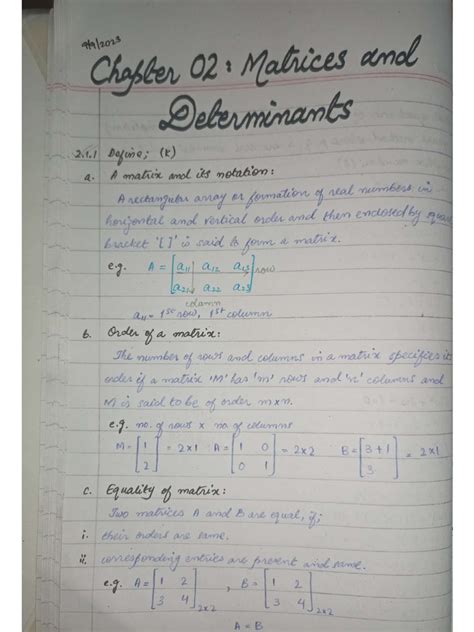 9/9/2023
Chapter 02: Matrices and
Determinants
2.1.1 Define; (K)
a. A matrix and its notation:
A rectangular array or formation of real numbers in
horizontal and vertical order and then enclosed by square
bracket '[ ]' is said to form a matrix.
e.g. A = [a11 a12 a13] row
[a21 a22 a23]
column
a11 = 1st row, 1st column
b. Order of a matrix:
The number of rows and columns in a matrix specifies its
order if a matrix 'M' has 'm' rows and 'n' columns and
M is said to be of order m×n.
e.g. no. of rows × no of columns
M = [1 = 2×1 A = [1 0 = 2×2 B = [3+1 = 2×1
2] 0 1] 3]
c. Equality of matrix:
Two matrices A and B are equal, if;
i. their orders are same.
ii. corresponding entries are present and same.
e.g. A = [1 2 , B = [1 2
3 4]2×2 3 4]2×2
A = B